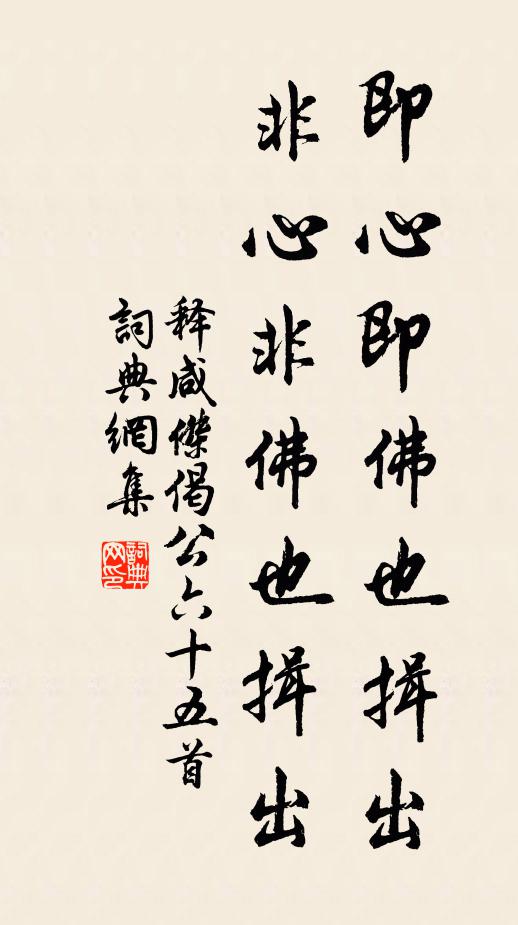 即心即佛也揖出
非心非佛也揖出
释咸傑偈公六十五首
詞典網集
詞典网印